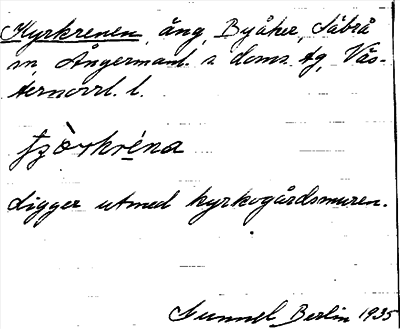 Kyrkrenen, äng, Byåker, Säbrå
sn, Ångermanl. s doms. tg, Väs-
ternorrl. l.
Ligger utmed kyrkogårdsmuren.
Gunnel Berlin 1935